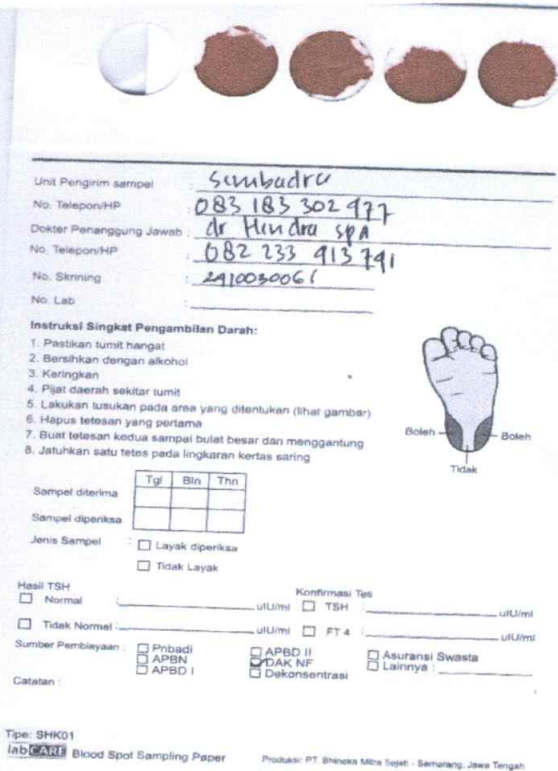 Unit Pengirim sampel : Sumbadra
No. Telepon/HP : 083 183 302 977
Dokter Penanggung Jawab : dr Hendra SpA
No. Telepon/HP : 082 233 913 791
No. Skrining : 2410030061
No. Lab :
Instruksi Singkat Pengambilan Darah:
1. Pastikan tumit hangat
2. Bersihkan dengan alkohol
3. Keringkan
4. Pijat daerah sekitar tumit
5. Lakukan tusukan pada area yang ditentukan (lihat gambar)
6. Hapus tetesan yang pertama
7. Buat tetesan kedua sampai bulat besar dan menggantung
8. Jatuhkan satu tetes pada lingkaran kertas saring
Boleh Boleh
Tidak
Tgl Bln Thn
Sampel diterima
Sampel diperiksa
Jenis Sampel : Layak diperiksa
Tidak Layak
Hasil TSH Konfirmasi Tes
Normal : uIU/ml TSH : uIU/ml
Tidak Normal : uIU/ml FT 4 : uIU/ml
Sumber Pembiayaan : Pribadi APBD II Asuransi Swasta
APBN DAK NF Lainnya :
APBD I Dekonsentrasi
Catatan :
Tipe: SHK01
labCARE Blood Spot Sampling Paper Produksi: PT. Bhineka Mitra Sejati - Semarang, Jawa Tengah